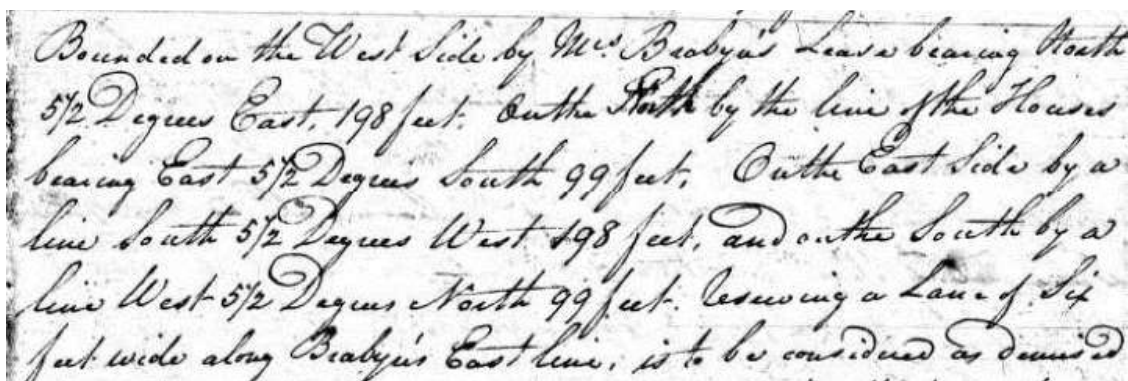 Bounded on the West Side by Mrs. Brabyn's Lease bearing North
5 1/2 Degrees East, 198 feet. On the North by the line of the Houses
bearing East 5 1/2 Degrees South 99 feet, On the East Side by a
line South 5 1/2 Degrees West 198 feet, and on the South by a
line West 5 1/2 Degrees North 99 feet. reserving a Lane of Six
feet wide along Brabyn's East line, is to be considered as demised